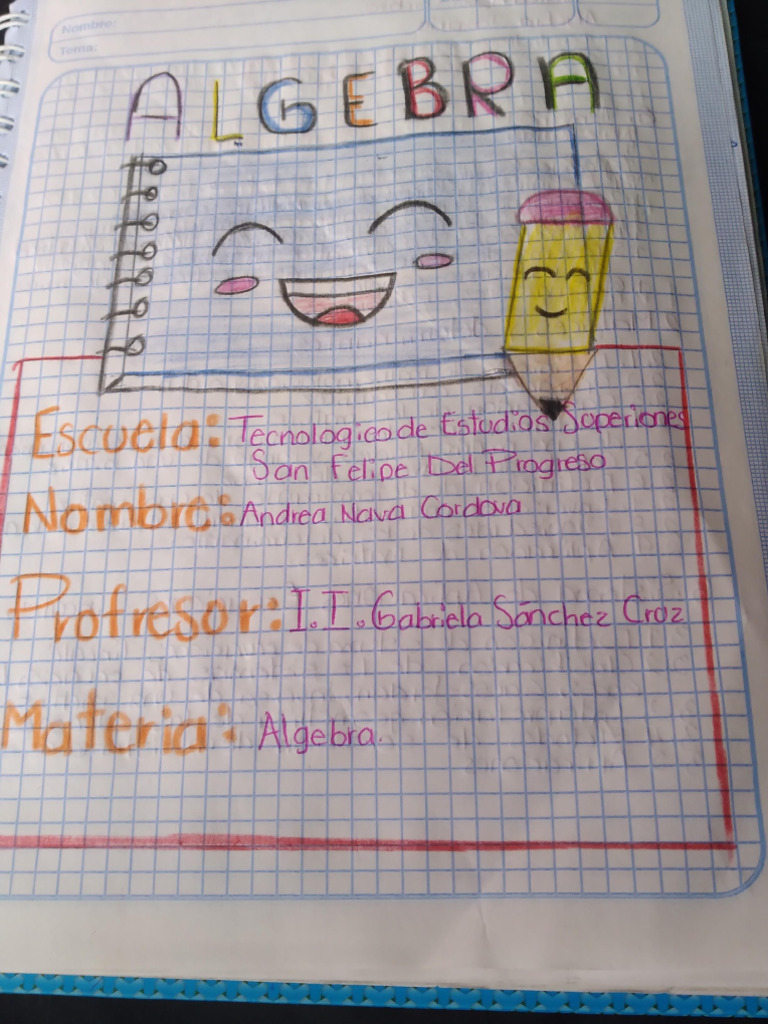 Nombre:
Tema:
ALGEBRA
Escuela: Tecnologico de Estudios Superiores
San Felipe Del Progreso
Nombre: Andrea Nava Cordova
Profresor: I.I. Gabriela Sánchez Cruz
Materia: Algebra.